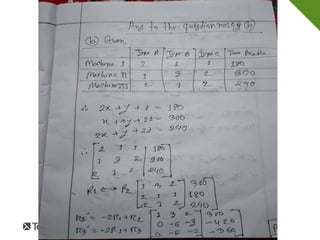 Ans to the question no 04 (b)
(b) Given,
Type A Type B Type C Time Available
Machine I 2 1 1 180
Machine II 1 3 2 300
Machine III 2 1 2 240
∴ 2x + y + z = 180
x + 3y + 2z = 300
2x + y + 2z = 240
∴ [2 1 1 | 180
1 3 2 | 300
2 1 2 | 240]
R1 ↔ R2 [1 3 2 | 300
2 1 1 | 180
2 1 2 | 240]
R2' = -2R1+R2 [1 3 2 | 300
0 -5 -3 -420
R3' = -2R1+R3 0 -5 -2 -360